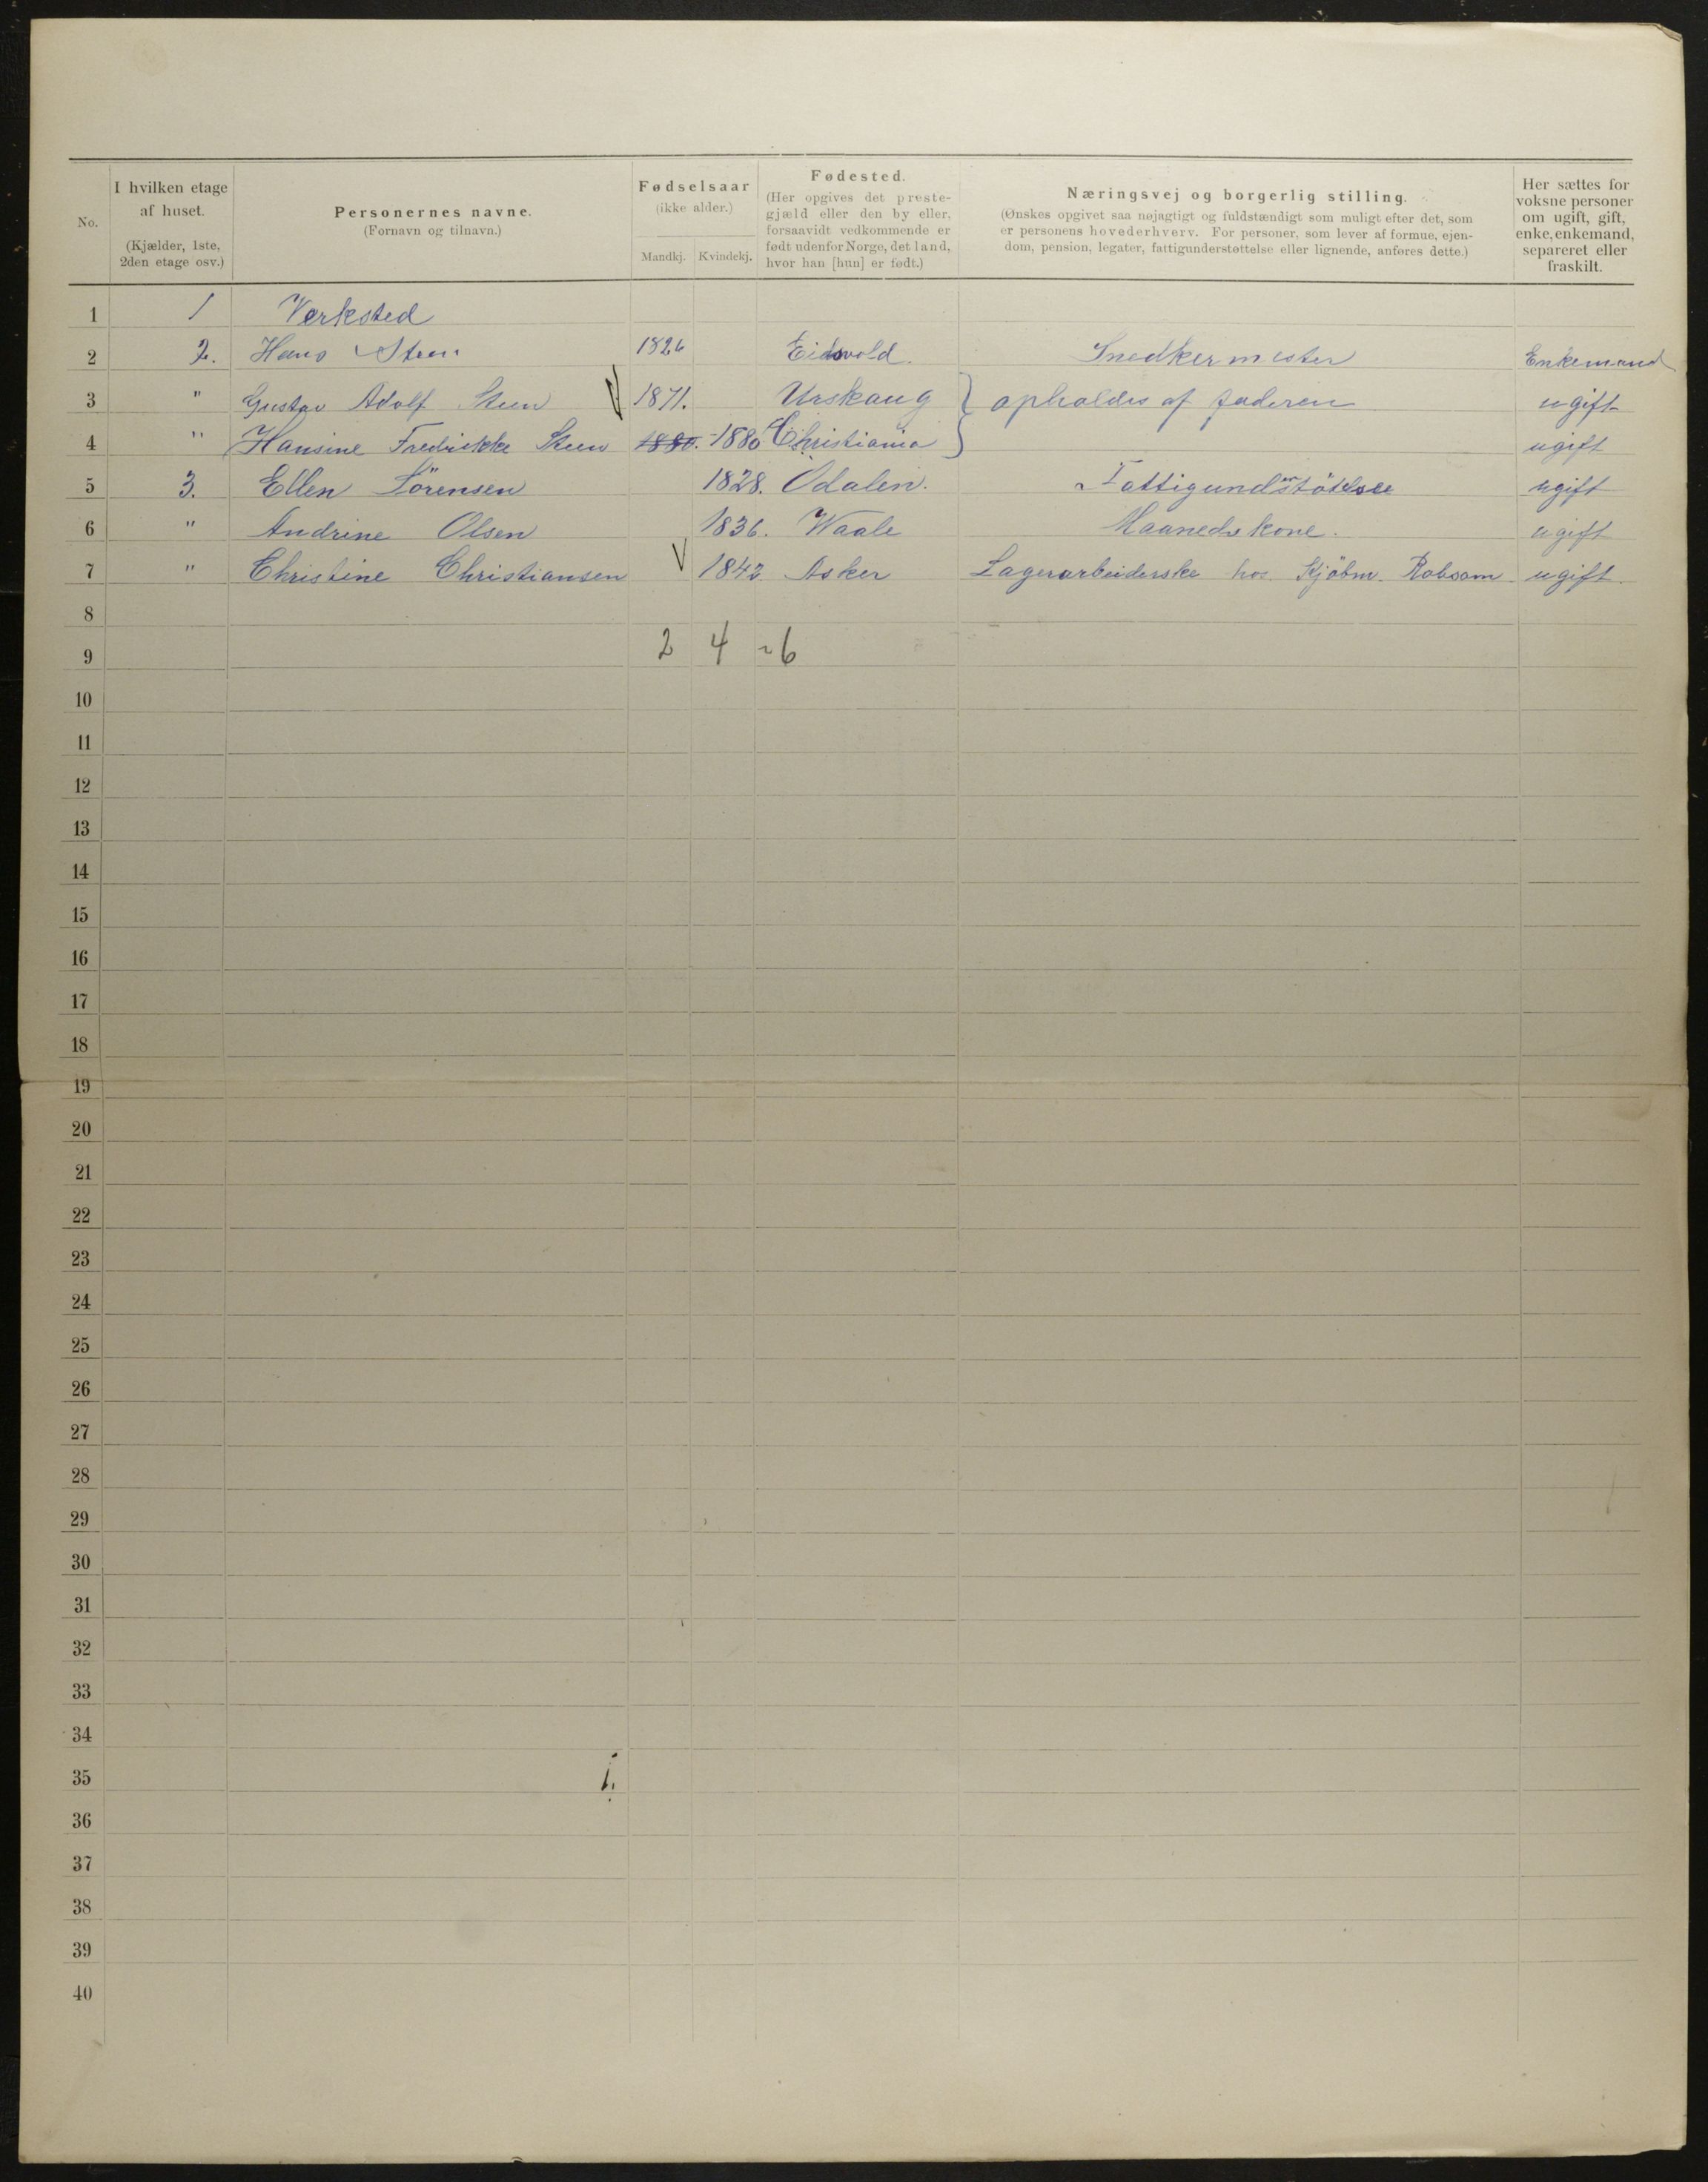 No.
I hvilken etage
af huset.
(Kjælder, 1ste,
2den etage osv.)
Personernes navne.
(Fornavn og tilnavn.)
Fødselsaar
(ikke alder.)
Mandkj. Kvindekj.
Fødested.
(Her opgives det preste-
gjæld eller den by eller,
forsaavidt vedkommende er
født udenfor Norge, det land,
hvor han [hun] er født.)
Næringsvej og borgerlig stilling.
(Ønskes opgivet saa nøjagtigt og fuldstændigt som muligt efter det, som
er personens hovederhverv. For personer, som lever af formue, ejen-
dom, pension, legater, fattigunderstøttelse eller lignende, anføres dette.)
Her sættes for
voksne personer
om ugift, gift,
enke, enkemand,
separeret eller
fraskilt.
1 1 Verksted
2 2. Hans Steen 1826 Eidsvold. Snedkermester Enkemand
3 " Gustav Adolf Steen 1871. Urskaug } opholdes af faderen ugift
4 " Hansine Fredrikke Steen 1880. 1880 Christiania ugift
5 3. Ellen Sörensen 1828. Odalen. Fattigunderstötelse ugift
6 " Andrine Olsen 1836. Waale Maanedskone. ugift
7 " Christine Christiansen 1842 Asker Lagerarbeiderske hos Kjöbm. Robsam ugift.
8
9 2 4 ~6
10
11
12
13
14
15
16
17
18
19
20
21
22
23
24
25
26
27
28
29
30
31
32
33
34
35
36
37
38
39
40